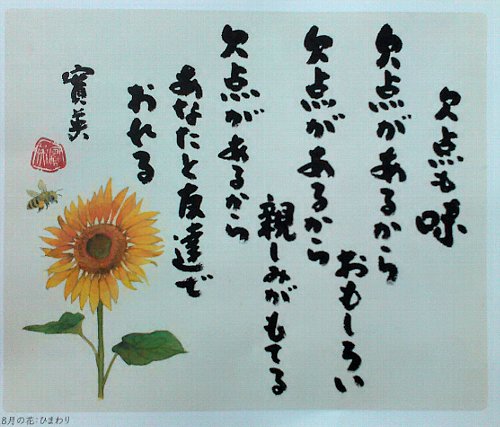 欠点も味
欠点があるから
おもしろい
欠点があるから
親しみがもてる
欠点があるから
あなたと友達で
おれる
寳美
8月の花:ひまわり